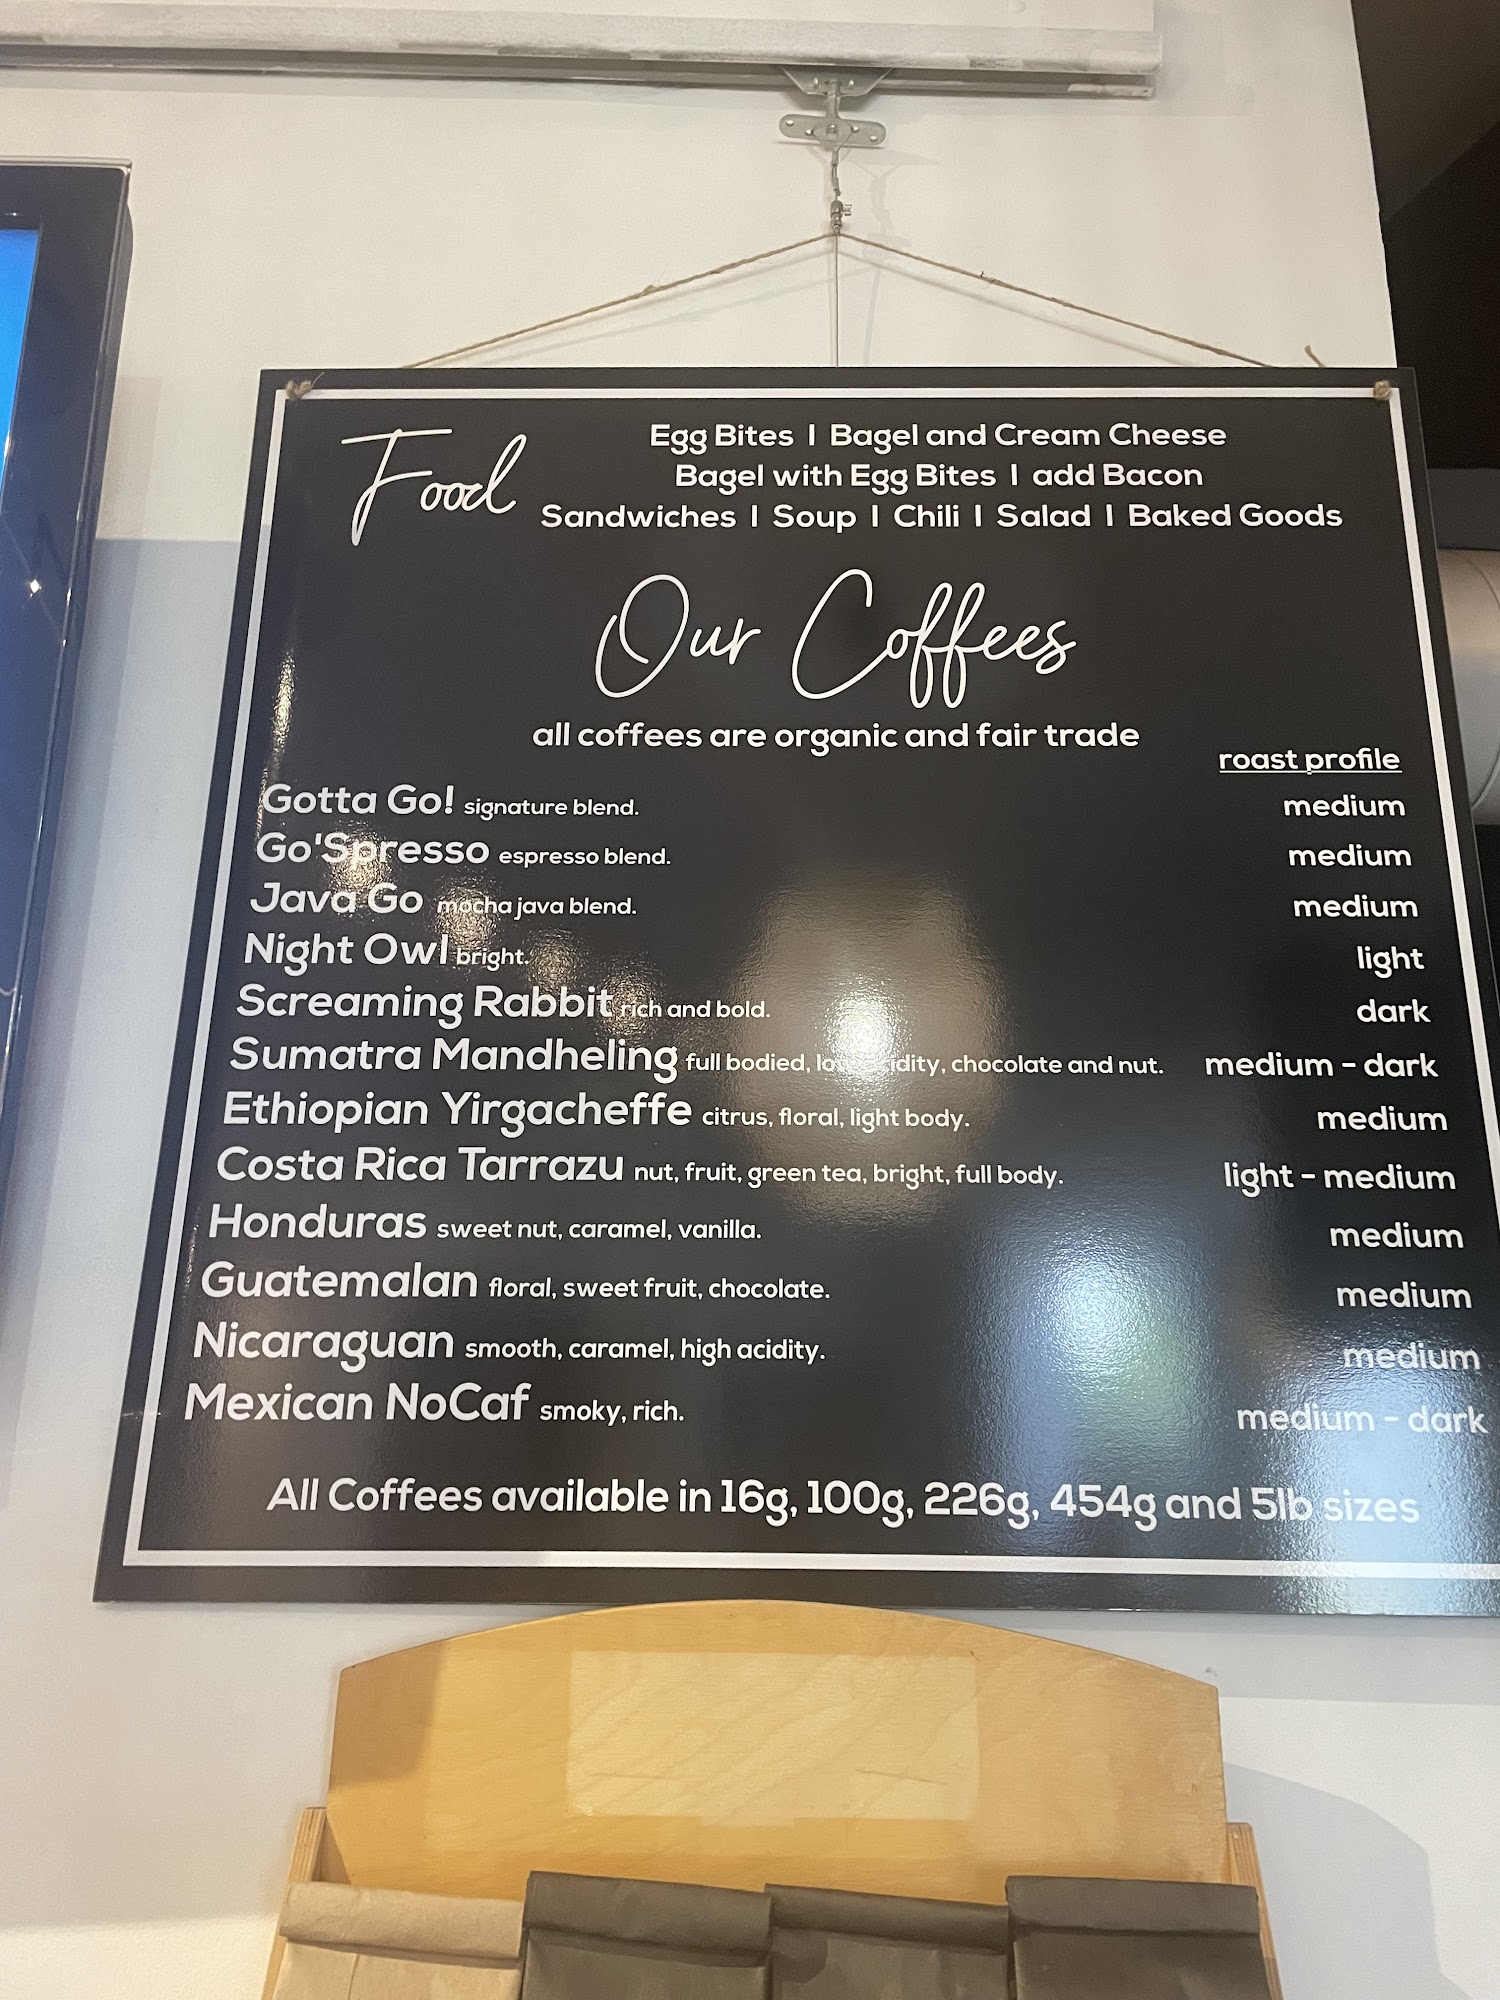 Food
Egg Bites | Bagel and Cream Cheese
Bagel with Egg Bites | add Bacon
Sandwiches | Soup | Chili | Salad | Baked Goods
Our Coffees
all coffees are organic and fair trade
roast profile
Gotta Go! signature blend. medium
Go'Spresso espresso blend. medium
Java Go mocha java blend. medium
Night Owl bright. light
Screaming Rabbit rich and bold. dark
Sumatra Mandheling full bodied, low acidity, chocolate and nut. medium - dark
Ethiopian Yirgacheffe citrus, floral, light body. medium
Costa Rica Tarrazu nut, fruit, green tea, bright, full body. light - medium
Honduras sweet nut, caramel, vanilla. medium
Guatemalan floral, sweet fruit, chocolate. medium
Nicaraguan smooth, caramel, high acidity. medium
Mexican NoCaf smoky, rich. medium - dark
All Coffees available in 16g, 100g, 226g, 454g and 5lb sizes